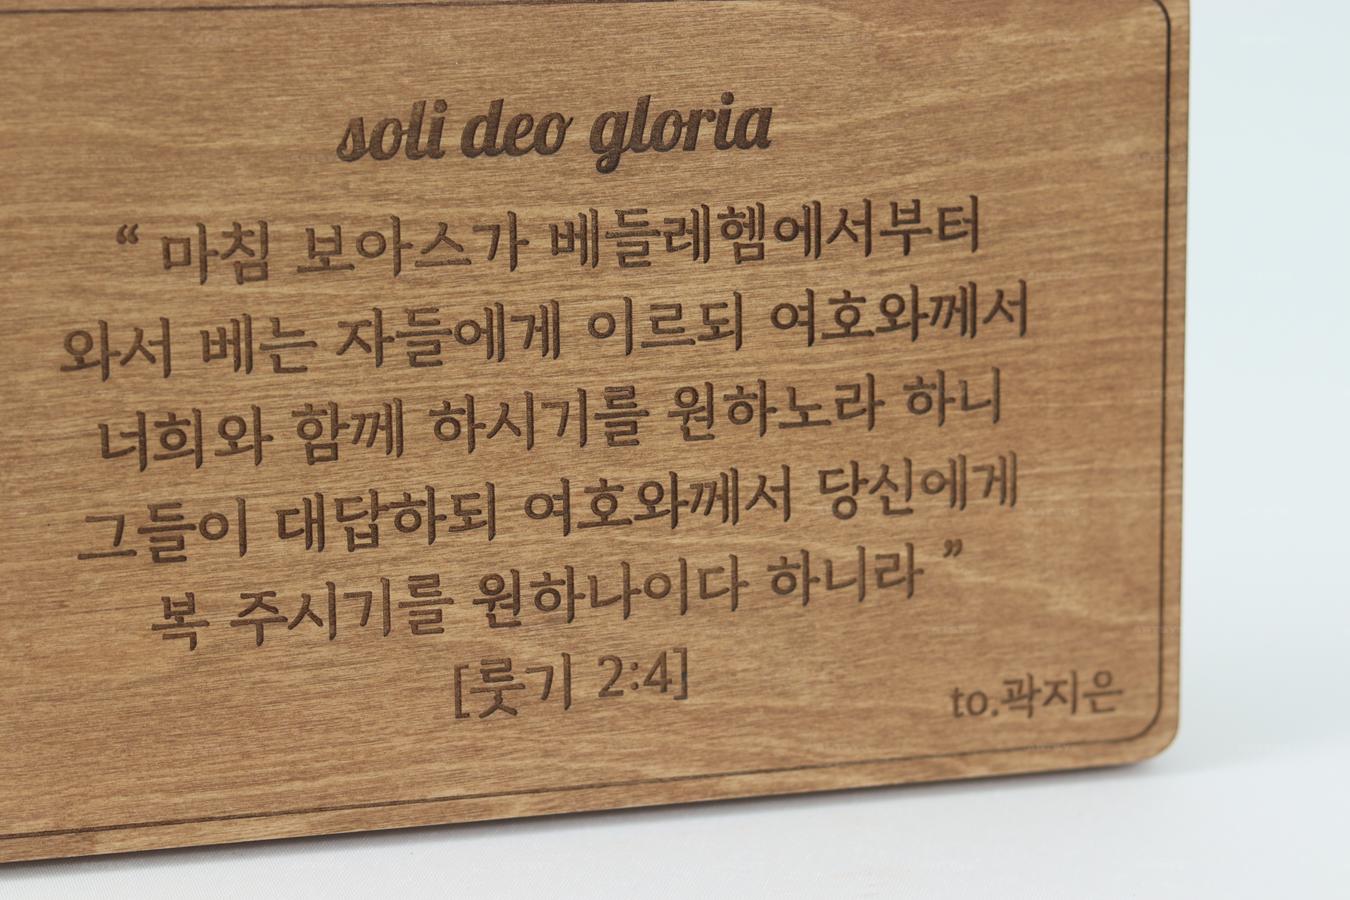 soli deo gloria
“ 마침 보아스가 베들레헴에서부터
와서 베는 자들에게 이르되 여호와께서
너희와 함께 하시기를 원하노라 하니
그들이 대답하되 여호와께서 당신에게
복 주시기를 원하나이다 하니라 ”
[룻기 2:4]
to.곽지은